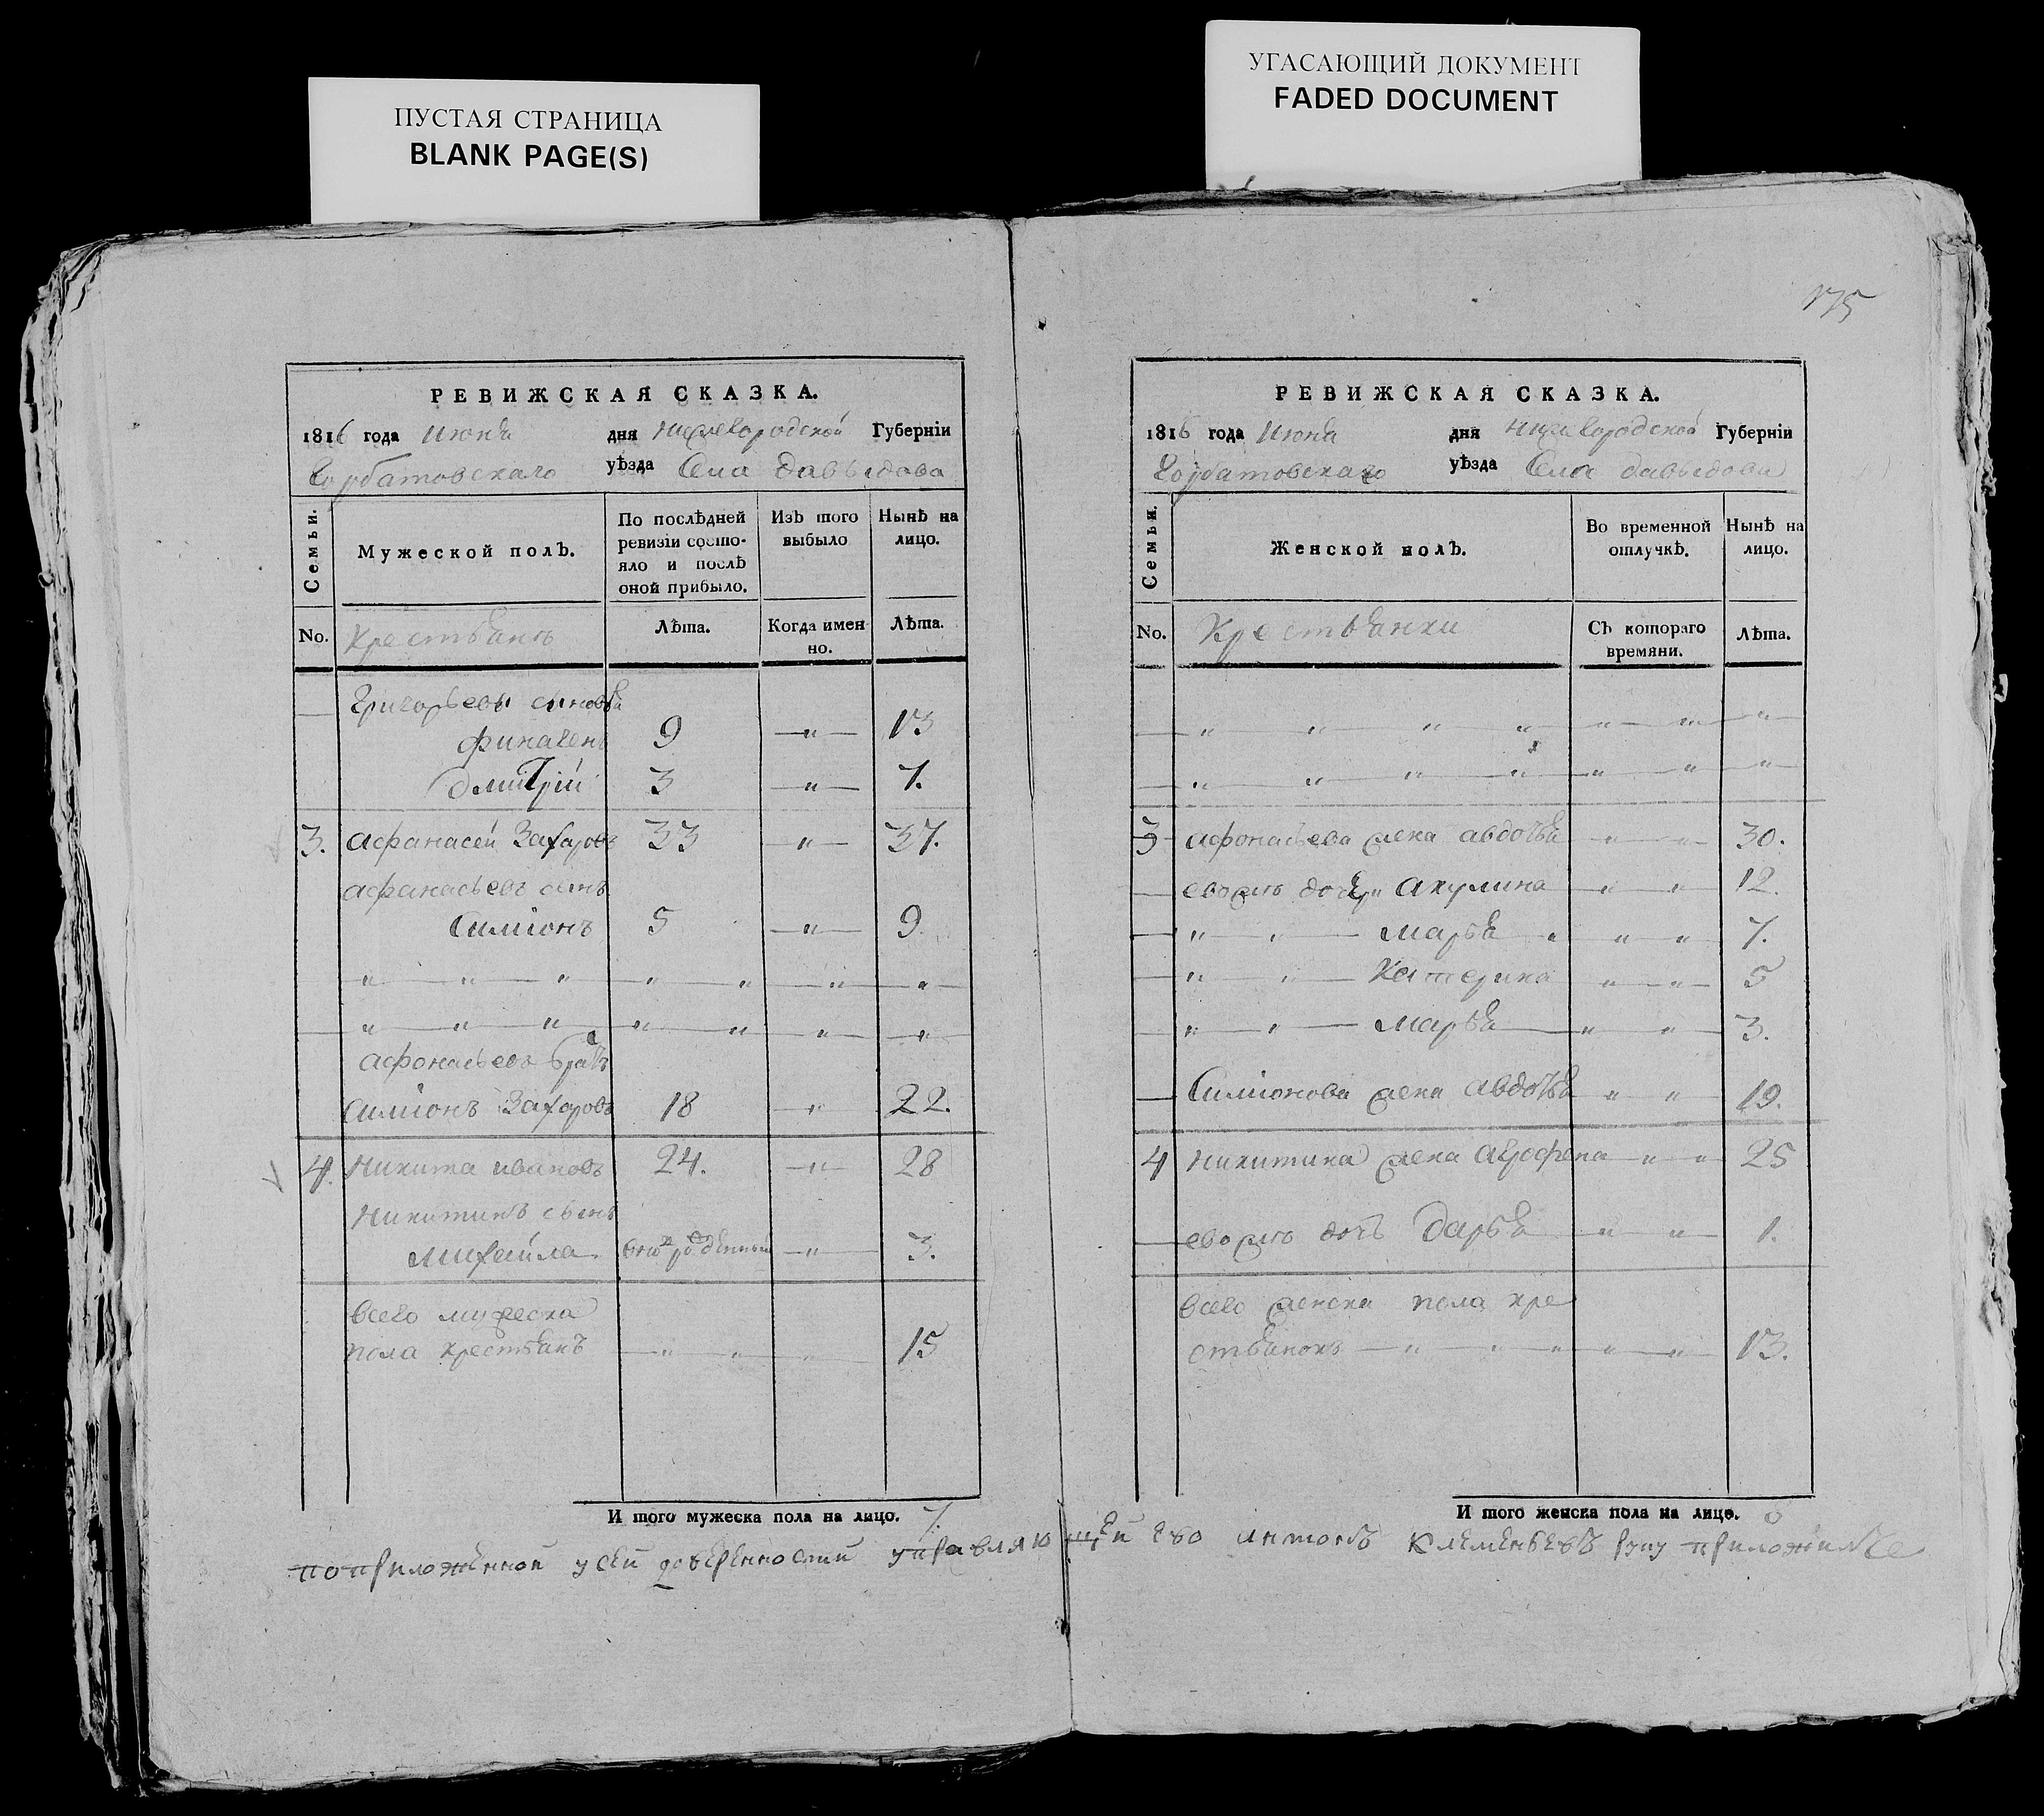 ПУСТАЯ СТРАНИЦА
BLANK PAGE(S)
УГАСАЮЩИЙ ДОКУМЕНТ
FADED DOCUMENT
175
РЕВИЖСКАЯ СКАЗКА.
1816 года Июня дня Нижегородской Губерніи
Горбатовскаго уѣзда Села Давыдова
Семьи. Мужеской полъ. По послѣдней ревизіи состояло и послѣ оной прибыло. Изъ того выбыло Нынѣ на лицо.
No. Крестьянъ Лѣта. Когда имен но. Лѣта.
Григорьевы сыновья
9 — „ — 13
Дмитрій 3 — „ — 7.
3. Афанасей Захаровъ 33 — „ — 37.
Афанасьевъ сынъ
Симіонъ 5 — „ — 9.
„ — „ — „ — „ — „ — „ — „
„ — „ — „ — „ — „ — „ — „
Афонасьевъ братъ
Симіонъ Захаровъ 18 — „ 22.
4. Никита Ивановъ 24. — „ 28
Никитинъ сынъ
Михайла новорожденный — „ — 3.
всего мужеска
пола крестьянъ — „ — „ — „ 15
И того мужеска пола на лицо. 7.
РЕВИЖСКАЯ СКАЗКА.
1816 года Июня дня Нижегородской Губерніи
Горбатовскаго уѣзда Села Давыдова
Семьи. Женской полъ. Во временной отлучкѣ. Нынѣ на лицо.
No. Крестьянки Съ котораго времяни. Лѣта.
„ „ „ „ „ „ „
„ „ „ „ „ „ „
3 Афонасьева жена Авдотья „ „ 30.
ево жъ дочери Акулина „ „ 12.
„ „ — Марья „ „ „ 7.
„ „ — Катерина „ „ 5
„ „ — Марья — „ „ 3.
Симіонова жена Авдотья „ „ 19.
4 Никитина жена Агрофена — „ „ 25
ево жъ дочь Дарья „ „ 1.
всего женска пола кре
стьянокъ — „ „ „ „ „ 13.
И того женска пола на лице. 8
по приложенной у сей доверенности управляющей ево Антонъ Клементьевъ руку приложилъ